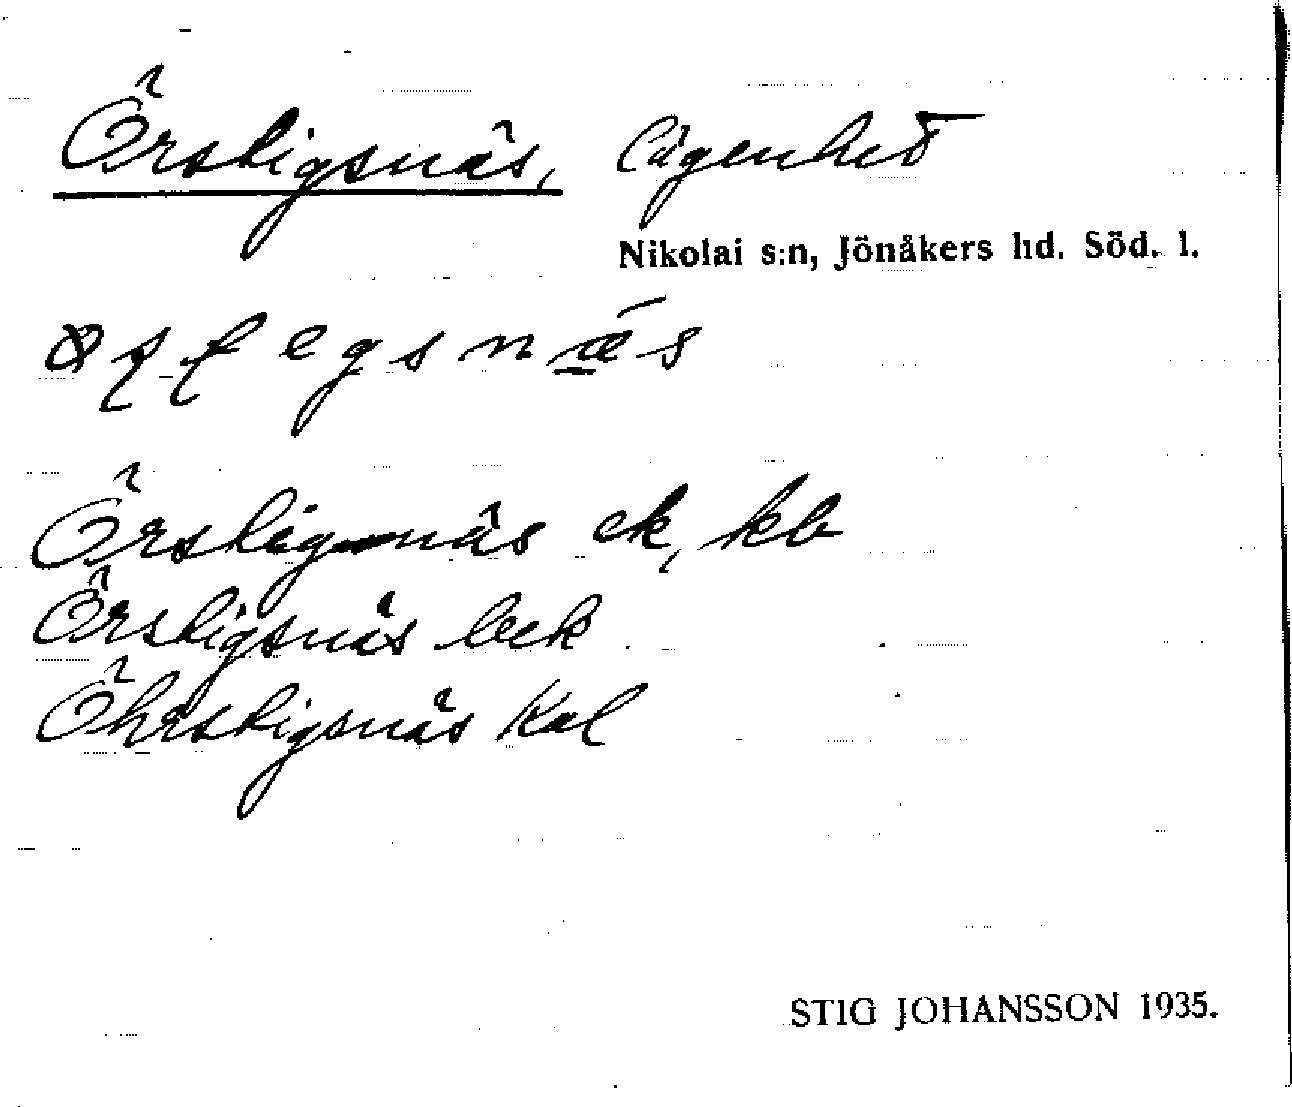 Örstigsnäs, lägenhet
Nikolai s:n, Jönåkers hd. Söd. l.
Örstignäs ek, kb
Örstigsnäs bek
Öhrstigsnäs Kal
STIG JOHANSSON 1935.